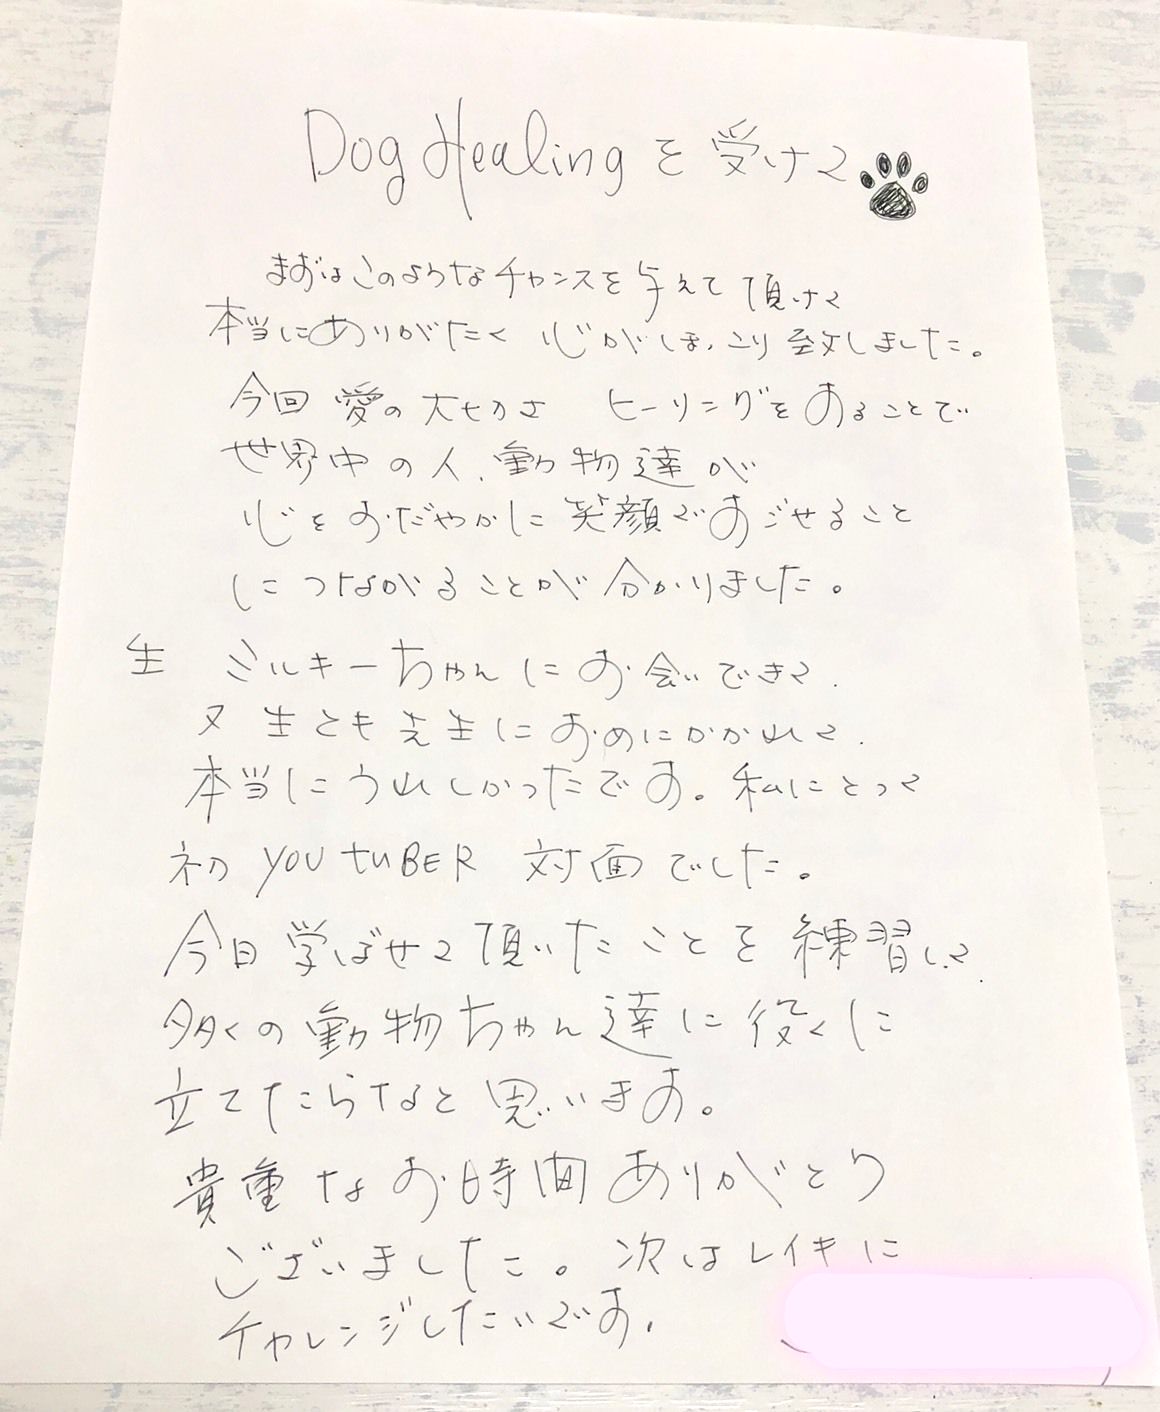 Dog Healing を受けて
まずはこのようなチャンスを与えて頂けて
本当にありがたく 心がほっこり致しました。
今回 愛の大切さ ヒーリングをすることで
世界中の人、動物達が
心をおだやかに笑顔ですごせること
につながることが分かりました。
生 ミルキーちゃんにお会いできて、
又 生とも先生におめにかかれて、
本当にうれしかったです。私にとって
初 YOUTUBER 対面でした。
今日学ばせて頂いたことを練習して、
多くの動物ちゃん達に役くに
立てたらなと思います。
貴重なお時間ありがとう
ございました。次はレイキに
チャレンジしたいです。